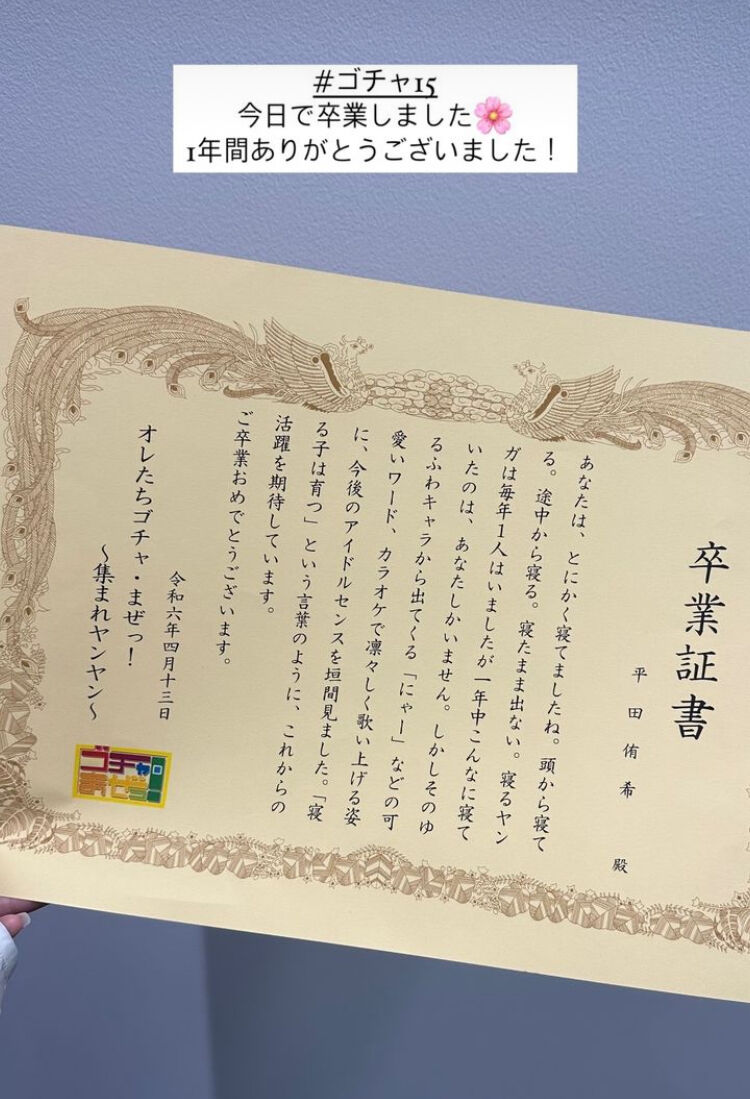 #ゴチャ15
今日で卒業しました🌸
1年間ありがとうございました！
卒業証書
平田侑希 殿
あなたは、とにかく寝てましたね。頭から寝て
る。途中から寝る。寝たまま出ない。寝るヤン
ガは毎年1人はいましたが一年中こんなに寝て
いたのは、あなたしかいません。しかしそのゆ
るふわキャラから出てくる「にゃー」などの可
愛いワード、カラオケで凛々しく歌い上げる姿
に、今後のアイドルセンスを垣間見ました。「寝
る子は育つ」という言葉のように、これからの
活躍を期待しています。
ご卒業おめでとうございます。
令和六年四月十三日
オレたちゴチャ・まぜっ！
～集まれヤンヤン～
ゴチャ
まぜっ!